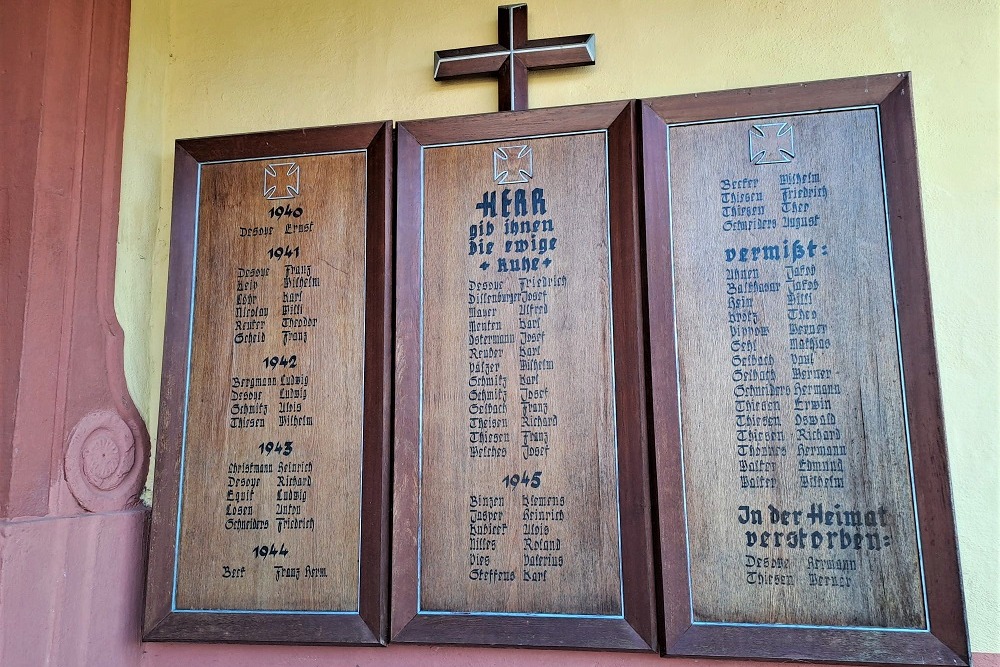 1940
Desoye Ernst
1941
Desoye Franz
Wilhelm
Löhr Karl
Nicolay Willi
Reuter Theodor
Scheid Franz
1942
Bergmann Ludwig
Desoye Ludwig
Schmitz Alois
Thiesen Wilhelm
1943
Christmann Heinrich
Desoye Richard
Equit Ludwig
Losen Anton
Schneiders Friedrich
1944
Beck Franz Herm.
HERR
gib ihnen
die ewige
+ Ruhe +
Desoye Friedrich
Dillenburger Josef
Mayer Alfred
Menten Karl
Ostermann Josef
Reuter Karl
Pälzer Wilhelm
Schmitz Karl
Schmitz Josef
Selbach Franz
Theisen Richard
Thiesen Franz
Welches Josef
1945
Binzen Klemens
Jasper Heinrich
Kubieck Alois
Nilles Roland
Pies Valerius
Steffens Karl
Becker Wilhelm
Thiesen Friedrich
Thiesen Theo
Schneiders August
vermißt:
Ahnen Jakob
Balthasar Jakob
Hein Willi
Krötz Theo
Pippow Werner
Sehl Mathias
Selbach Paul
Selbach Werner
Schneiders Hermann
Thiesen Erwin
Thiesen Oswald
Thiesen Richard
Thönnes Hermann
Walter Edmund
Walter Wilhelm
In der Heimat
verstorben:
Desoye Hermann
Thiesen Werner